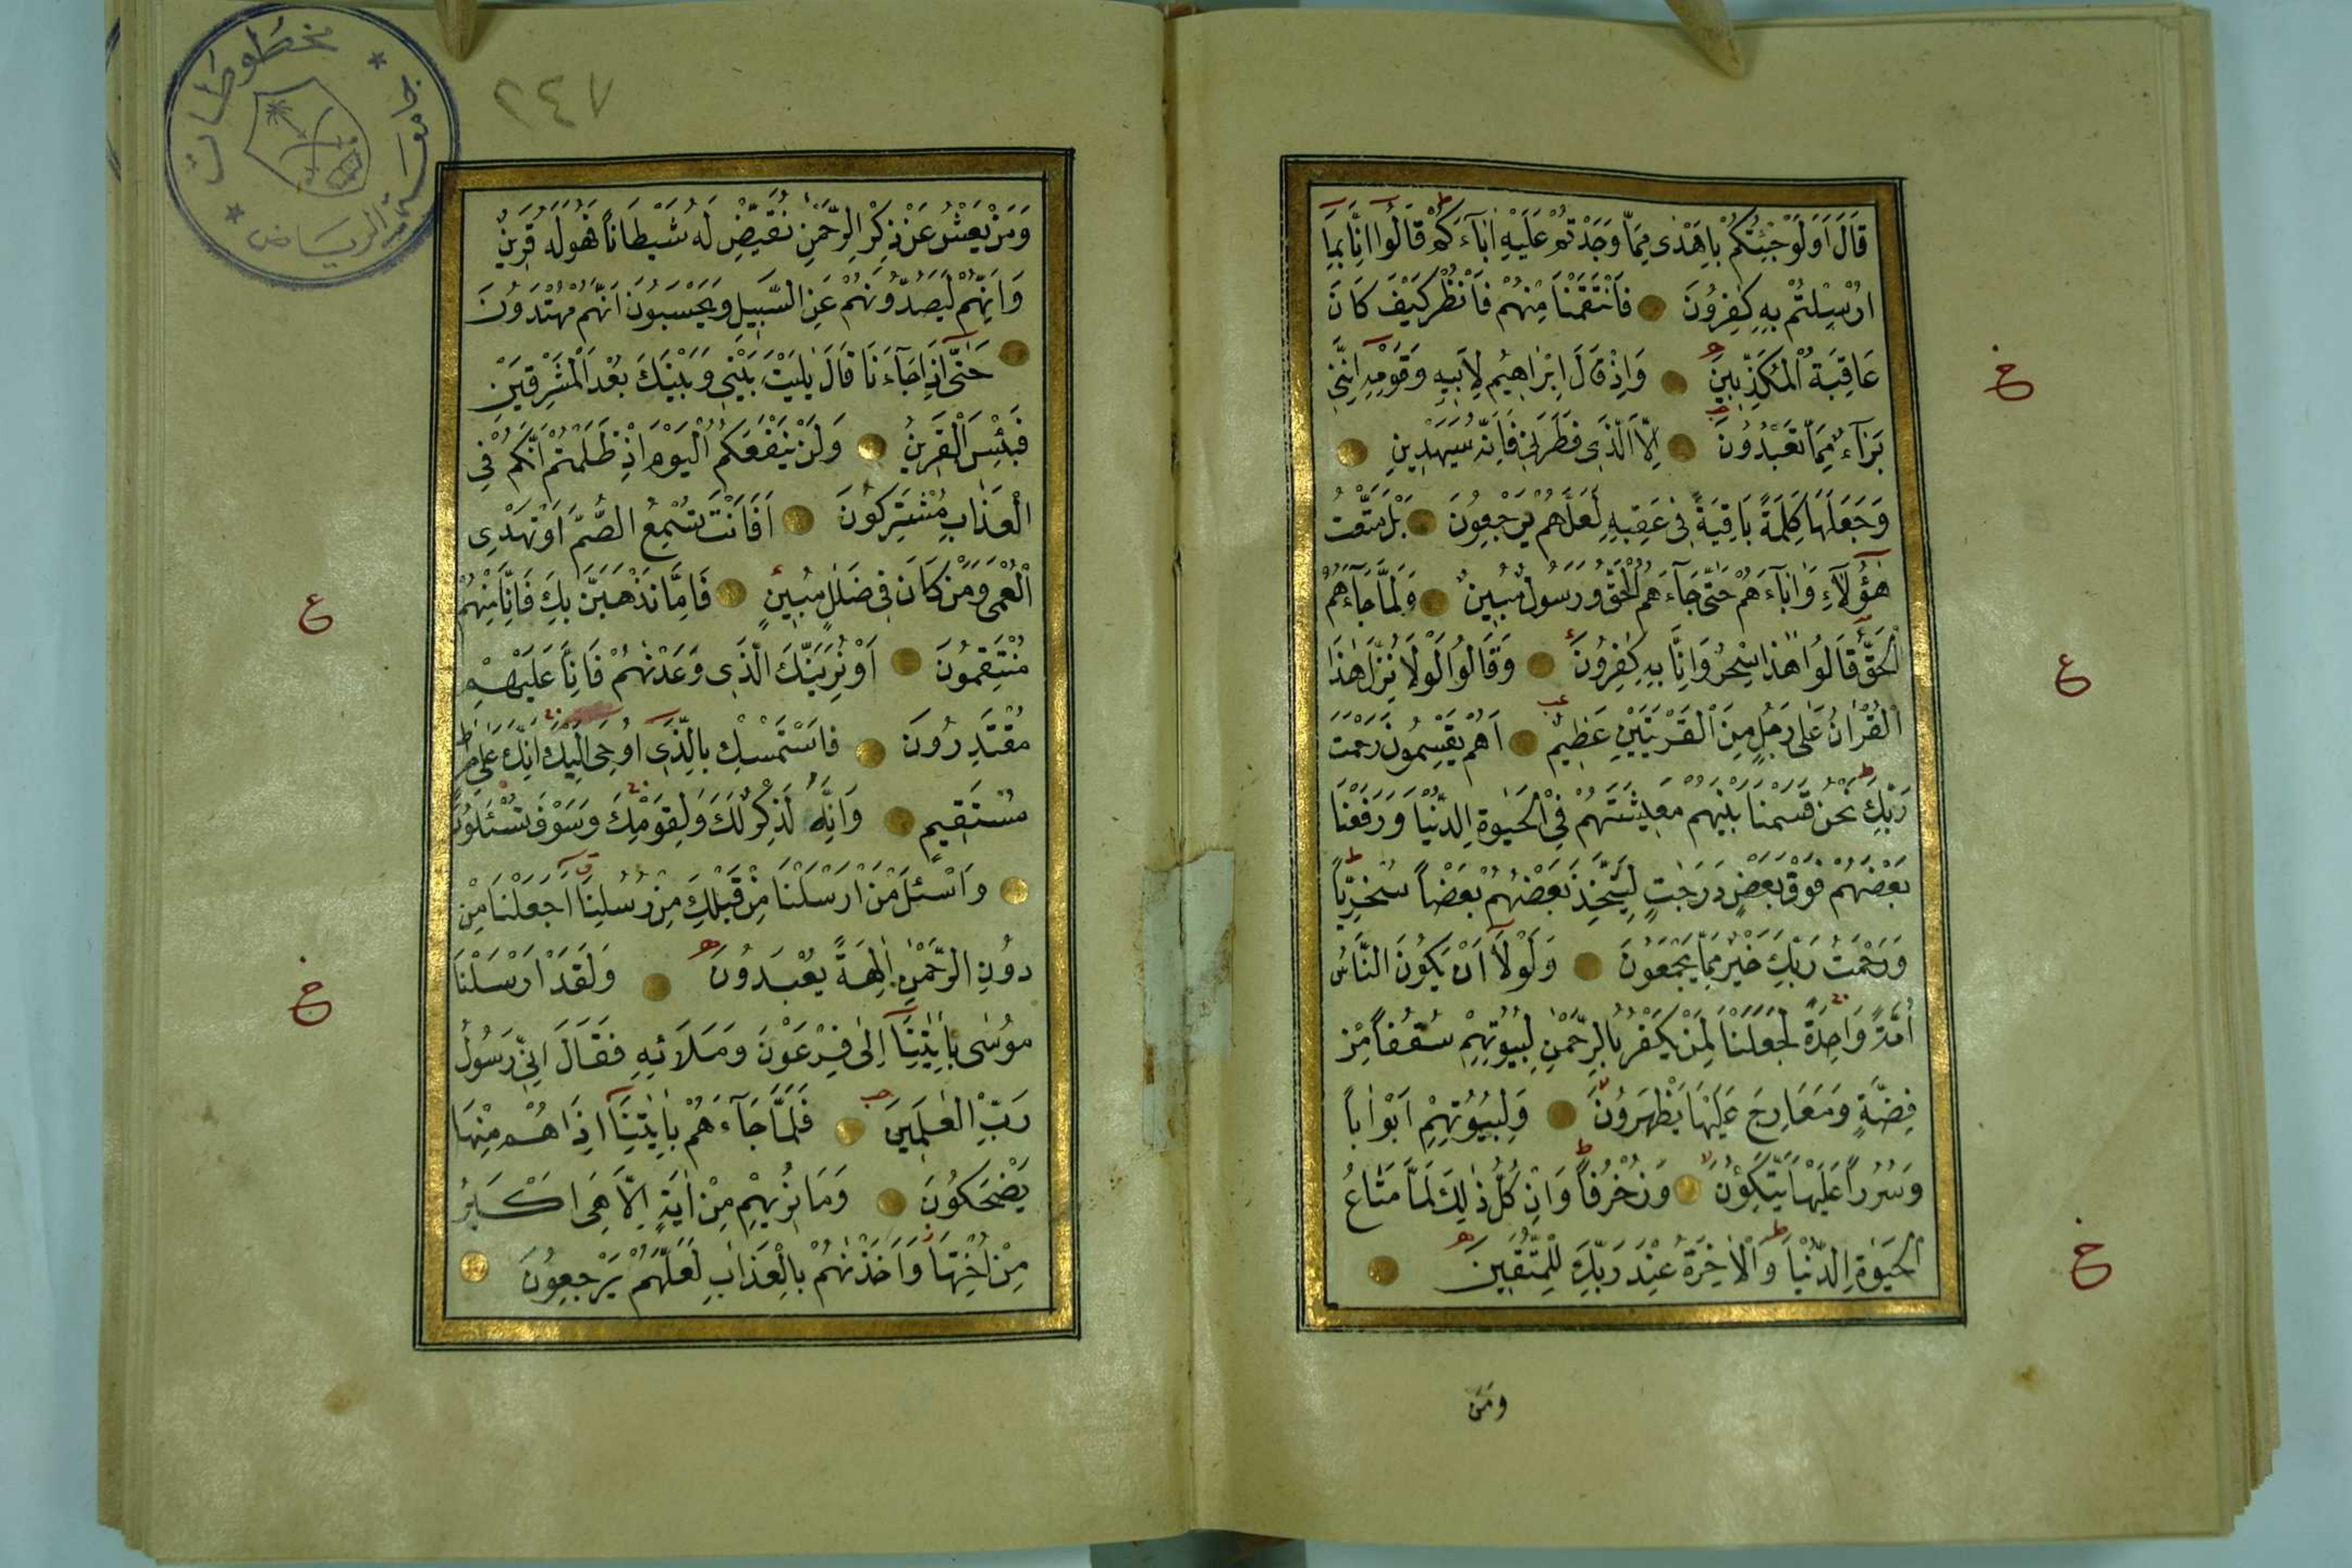 قَالَ اَوَلَوْ جِئْتُكُمْ بِاَهْدٰى مِمَّا وَجَدْتُمْ عَلَيْهِ اٰبَآءَكُمْ قَالُوا اِنَّا بِمَا
اُرْسِلْتُمْ بِهِ كٰفِرُونَ فَانْتَقَمْنَا مِنْهُمْ فَانْظُرْ كَيْفَ كَانَ
عَاقِبَةُ الْمُكَذِّبِينَ وَاِذْ قَالَ اِبْرٰاهِيمُ لِاَبِيهِ وَقَوْمِهِ اِنَّنِى
خ
بَرَآءٌ مِمَّا تَعْبُدُونَ اِلَّا الَّذِى فَطَرَنِى فَاِنَّهُ سَيَهْدِينِ
وَجَعَلَهَا كَلِمَةً بَاقِيَةً فِى عَقِبِهِ لَعَلَّهُمْ يَرْجِعُونَ بَلْ مَتَّعْتُ
هٰؤُلَآءِ وَاٰبَآءَهُمْ حَتّٰى جَآءَهُمُ الْحَقُّ وَرَسُولٌ مُبِينٌ وَلَمَّا جَآءَهُمُ
الْحَقُّ قَالُوا هٰذَا سِحْرٌ وَاِنَّا بِهِ كٰفِرُونَ وَقَالُوا لَوْلَا نُزِّلَ هٰذَا
ع
الْقُرْاٰنُ عَلٰى رَجُلٍ مِنَ الْقَرْيَتَيْنِ عَظِيمٍ اَهُمْ يَقْسِمُونَ رَحْمَتَ
رَبِّكَ نَحْنُ قَسَمْنَا بَيْنَهُمْ مَعِيشَتَهُمْ فِى الْحَيٰوةِ الدُّنْيَا وَرَفَعْنَا
بَعْضَهُمْ فَوْقَ بَعْضٍ دَرَجٰتٍ لِيَتَّخِذَ بَعْضُهُمْ بَعْضاً سُخْرِيّاً
وَرَحْمَتُ رَبِّكَ خَيْرٌ مِمَّا يَجْمَعُونَ وَلَوْلَا اَنْ يَكُونَ النَّاسُ
اُمَّةً وَاحِدَةً لَجَعَلْنَا لِمَنْ يَكْفُرُ بِالرَّحْمٰنِ لِبُيُوتِهِمْ سُقُفاً مِنْ
فِضَّةٍ وَمَعَارِجَ عَلَيْهَا يَظْهَرُونَ وَلِبُيُوتِهِمْ اَبْوَاباً
وَسُرُراً عَلَيْهَا يَتَّكِؤُنَ وَزُخْرُفاً وَاِنْ كُلُّ ذٰلِكَ لَمَّا مَتَاعُ
الْحَيٰوةِ الدُّنْيَا وَالْاٰخِرَةُ عِنْدَ رَبِّكَ لِلْمُتَّقِينَ
خ
وَمَنْ
٢٤٧
مخطوطات
الرياض
وَمَنْ يَعْشُ عَنْ ذِكْرِ الرَّحْمٰنِ نُقَيِّضْ لَهُ شَيْطَاناً فَهُوَ لَهُ قَرِينٌ
وَاِنَّهُمْ لَيَصُدُّونَهُمْ عَنِ السَّبِيلِ وَيَحْسَبُونَ اَنَّهُمْ مُهْتَدُونَ
حَتّٰى اِذَا جَآءَنَا قَالَ يٰلَيْتَ بَيْنِى وَبَيْنَكَ بُعْدَ الْمَشْرِقَيْنِ
فَبِئْسَ الْقَرِينُ وَلَنْ يَنْفَعَكُمُ الْيَوْمَ اِذْ ظَلَمْتُمْ اَنَّكُمْ فِى
الْعَذَابِ مُشْتَرِكُونَ اَفَاَنْتَ تُسْمِعُ الصُّمَّ اَوْ تَهْدِى
الْعُمْىَ وَمَنْ كَانَ فِى ضَلٰلٍ مُبِينٍ فَاِمَّا نَذْهَبَنَّ بِكَ فَاِنَّا مِنْهُمْ
ع
مُنْتَقِمُونَ اَوْ نُرِيَنَّكَ الَّذِى وَعَدْنٰهُمْ فَاِنَّا عَلَيْهِمْ
مُقْتَدِرُونَ فَاسْتَمْسِكْ بِالَّذِى اُوحِىَ اِلَيْكَ اِنَّكَ عَلٰى صِرَاطٍ
مُسْتَقِيمٍ وَاِنَّهُ لَذِكْرٌ لَكَ وَلِقَوْمِكَ وَسَوْفَ تُسْئَلُونَ
وَاسْئَلْ مَنْ اَرْسَلْنَا مِنْ قَبْلِكَ مِنْ رُسُلِنَا اَجَعَلْنَا مِنْ
دُونِ الرَّحْمٰنِ اٰلِهَةً يُعْبَدُونَ وَلَقَدْ اَرْسَلْنَا
خ
مُوسٰى بِاٰيٰتِنَا اِلٰى فِرْعَوْنَ وَمَلَائِهِ فَقَالَ اِنِّى رَسُولُ
رَبِّ الْعٰلَمِينَ فَلَمَّا جَآءَهُمْ بِاٰيٰتِنَا اِذَا هُمْ مِنْهَا
يَضْحَكُونَ وَمَا نُرِيهِمْ مِنْ اٰيَةٍ اِلَّا هِىَ اَكْبَرُ
مِنْ اُخْتِهَا وَاَخَذْنٰهُمْ بِالْعَذَابِ لَعَلَّهُمْ يَرْجِعُونَ